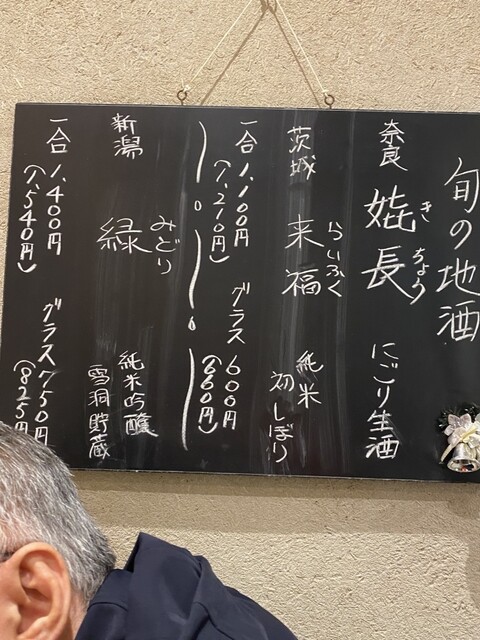 旬の地酒
奈良 嬉長 きちょう にごり生酒
茨城 来福 らいふく 純米 初しぼり
一合 1,100円 グラス 600円
(1,210円) (660円)
新潟 緑 みどり 純米吟醸 雪洞貯蔵
一合 1,400円 グラス 750円
(1,540円) (825円